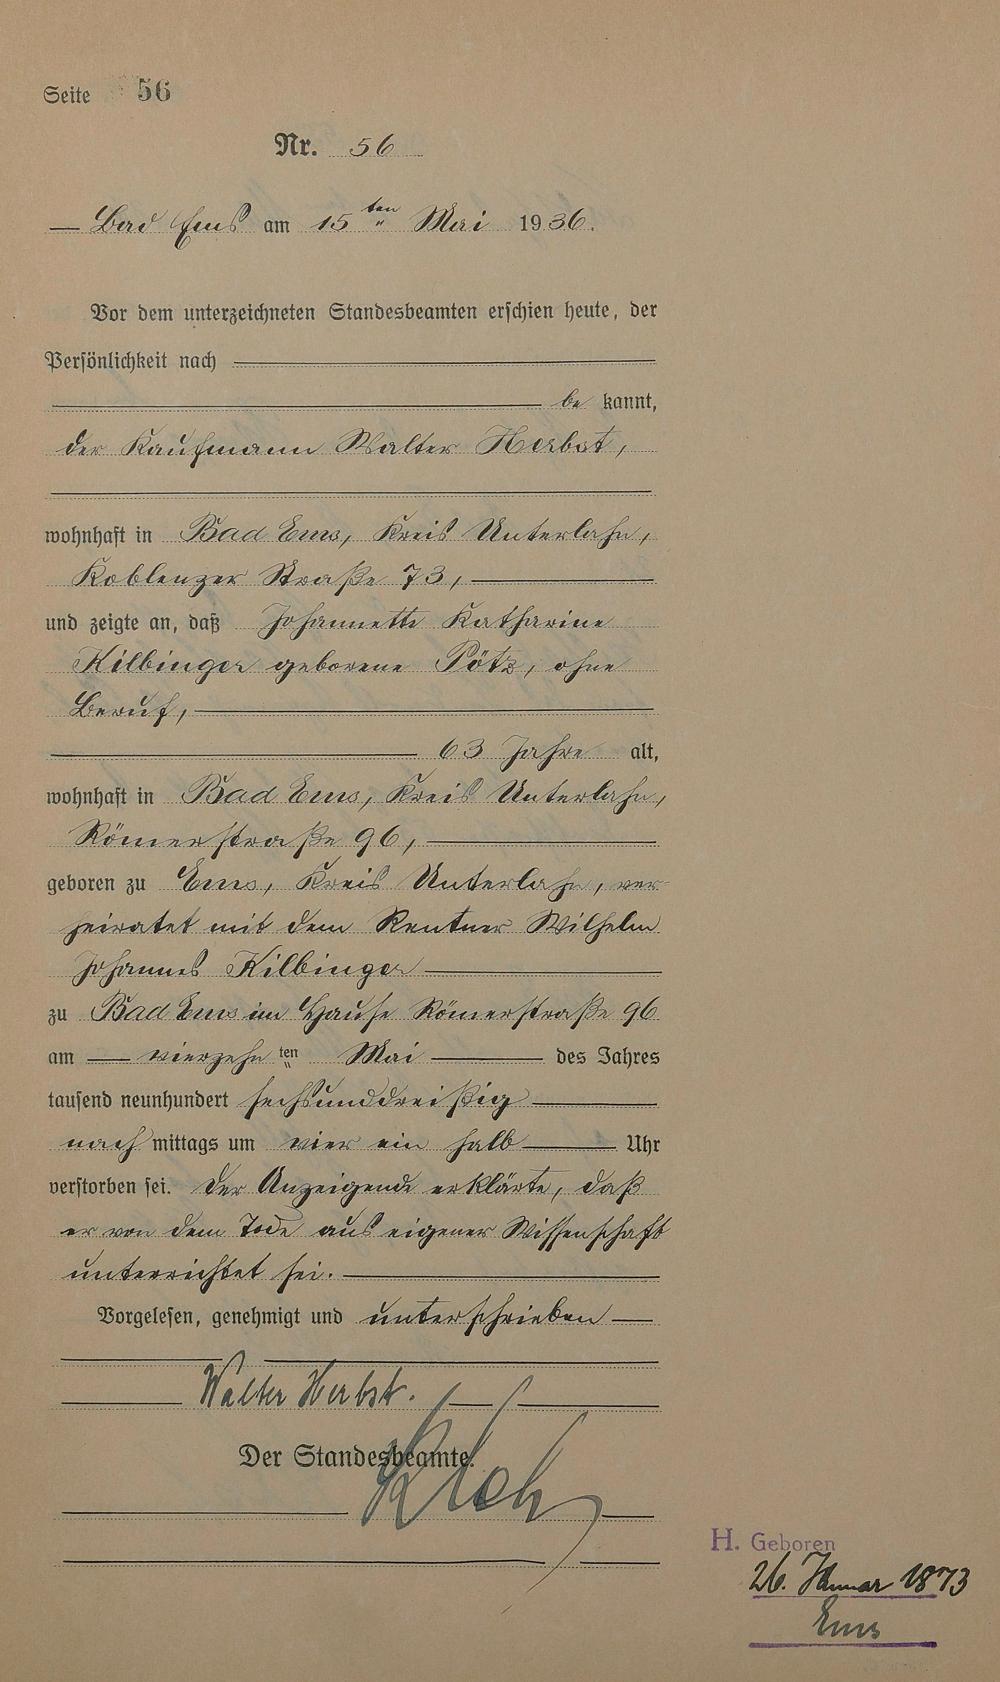 Seite 56
Nr. 56
Bad Ems am 15ten Mai 1936.
Vor dem unterzeichneten Standesbeamten erschien heute, der
Persönlichkeit nach
be kannt,
der Kaufmann Walter Herbst,
wohnhaft in Bad Ems, Kreis Unterlahn,
Koblenzer Straße 73,
und zeigte an, daß Johannette Katharine
Kilbinger geborene Pötz, ohne
Beruf,
63 Jahre alt,
wohnhaft in Bad Ems, Kreis Unterlahn,
Römerstraße 96,
geboren zu Ems, Kreis Unterlahn, ver-
heiratet mit dem Rentner Wilhelm
Johannes Kilbinger
zu Bad Ems im Hause Römerstraße 96
am vierzehnten Mai des Jahres
tausend neunhundert sechsunddreißig
nachmittags um vier ein halb Uhr
verstorben sei. Der Anzeigende erklärte, daß
er von dem Tode aus eigener Wissenschaft
unterrichtet sei.
Vorgelesen, genehmigt und unterschrieben
Walter Herbst.
Der Standesbeamte.
H. Geboren
26. Januar 1873
Ems